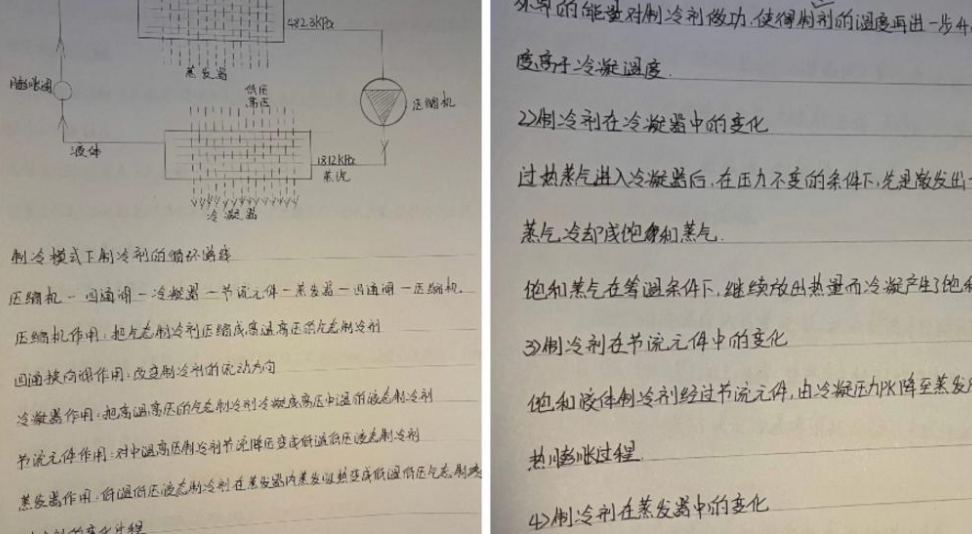 482.3kPa
蒸发器
膨胀阀
低压
高压
压缩机
液体
1812kPa
蒸汽
冷凝器
制冷模式下制冷剂的循环路线
压缩机-四通阀-冷凝器-节流元件-蒸发器-四通阀-压缩机
压缩机作用:把气态制冷剂压缩成高温高压的气态制冷剂
四通换向阀作用:改变制冷剂的流动方向
冷凝器作用:把高温高压的气态制冷剂冷凝成高压中温的液态制冷剂
节流元件作用:对中温高压制冷剂节流降压变成低温低压液态制冷剂
蒸发器作用:低温低压液态制冷剂在蒸发器内蒸发吸热变成低温低压气态制冷
的变化过程
外界的能量对制冷剂做功,使得制剂的温度再进一步升
度高于冷凝温度.
2>制冷剂在冷凝器中的变化
过热蒸气进入冷凝器后,在压力不变的条件下,先是散发出一
蒸气冷却成饱和蒸气.
饱和蒸气在等温条件下,继续放出热量而冷凝产生了饱和
3>制冷剂在节流元件中的变化
饱和液体制冷剂经过节流元件,由冷凝压力PK降至蒸发
热膨胀过程.
4>制冷剂在蒸发器中的变化